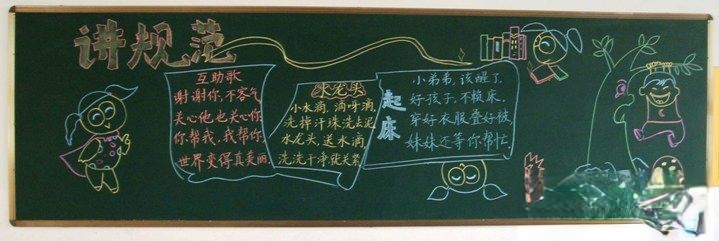 讲规范
互助歌
谢谢你,不客气
关心他也关心你
你帮我,我帮你,
世界变得真美丽.
水龙头
小水滴,滴呀滴,
洗掉汗珠洗去泥
水龙头,送水滴,
洗洗干净就关紧
起床
小弟弟,该醒了,
好孩子,不赖床.
穿好衣服叠好被
妹妹还等你帮忙.